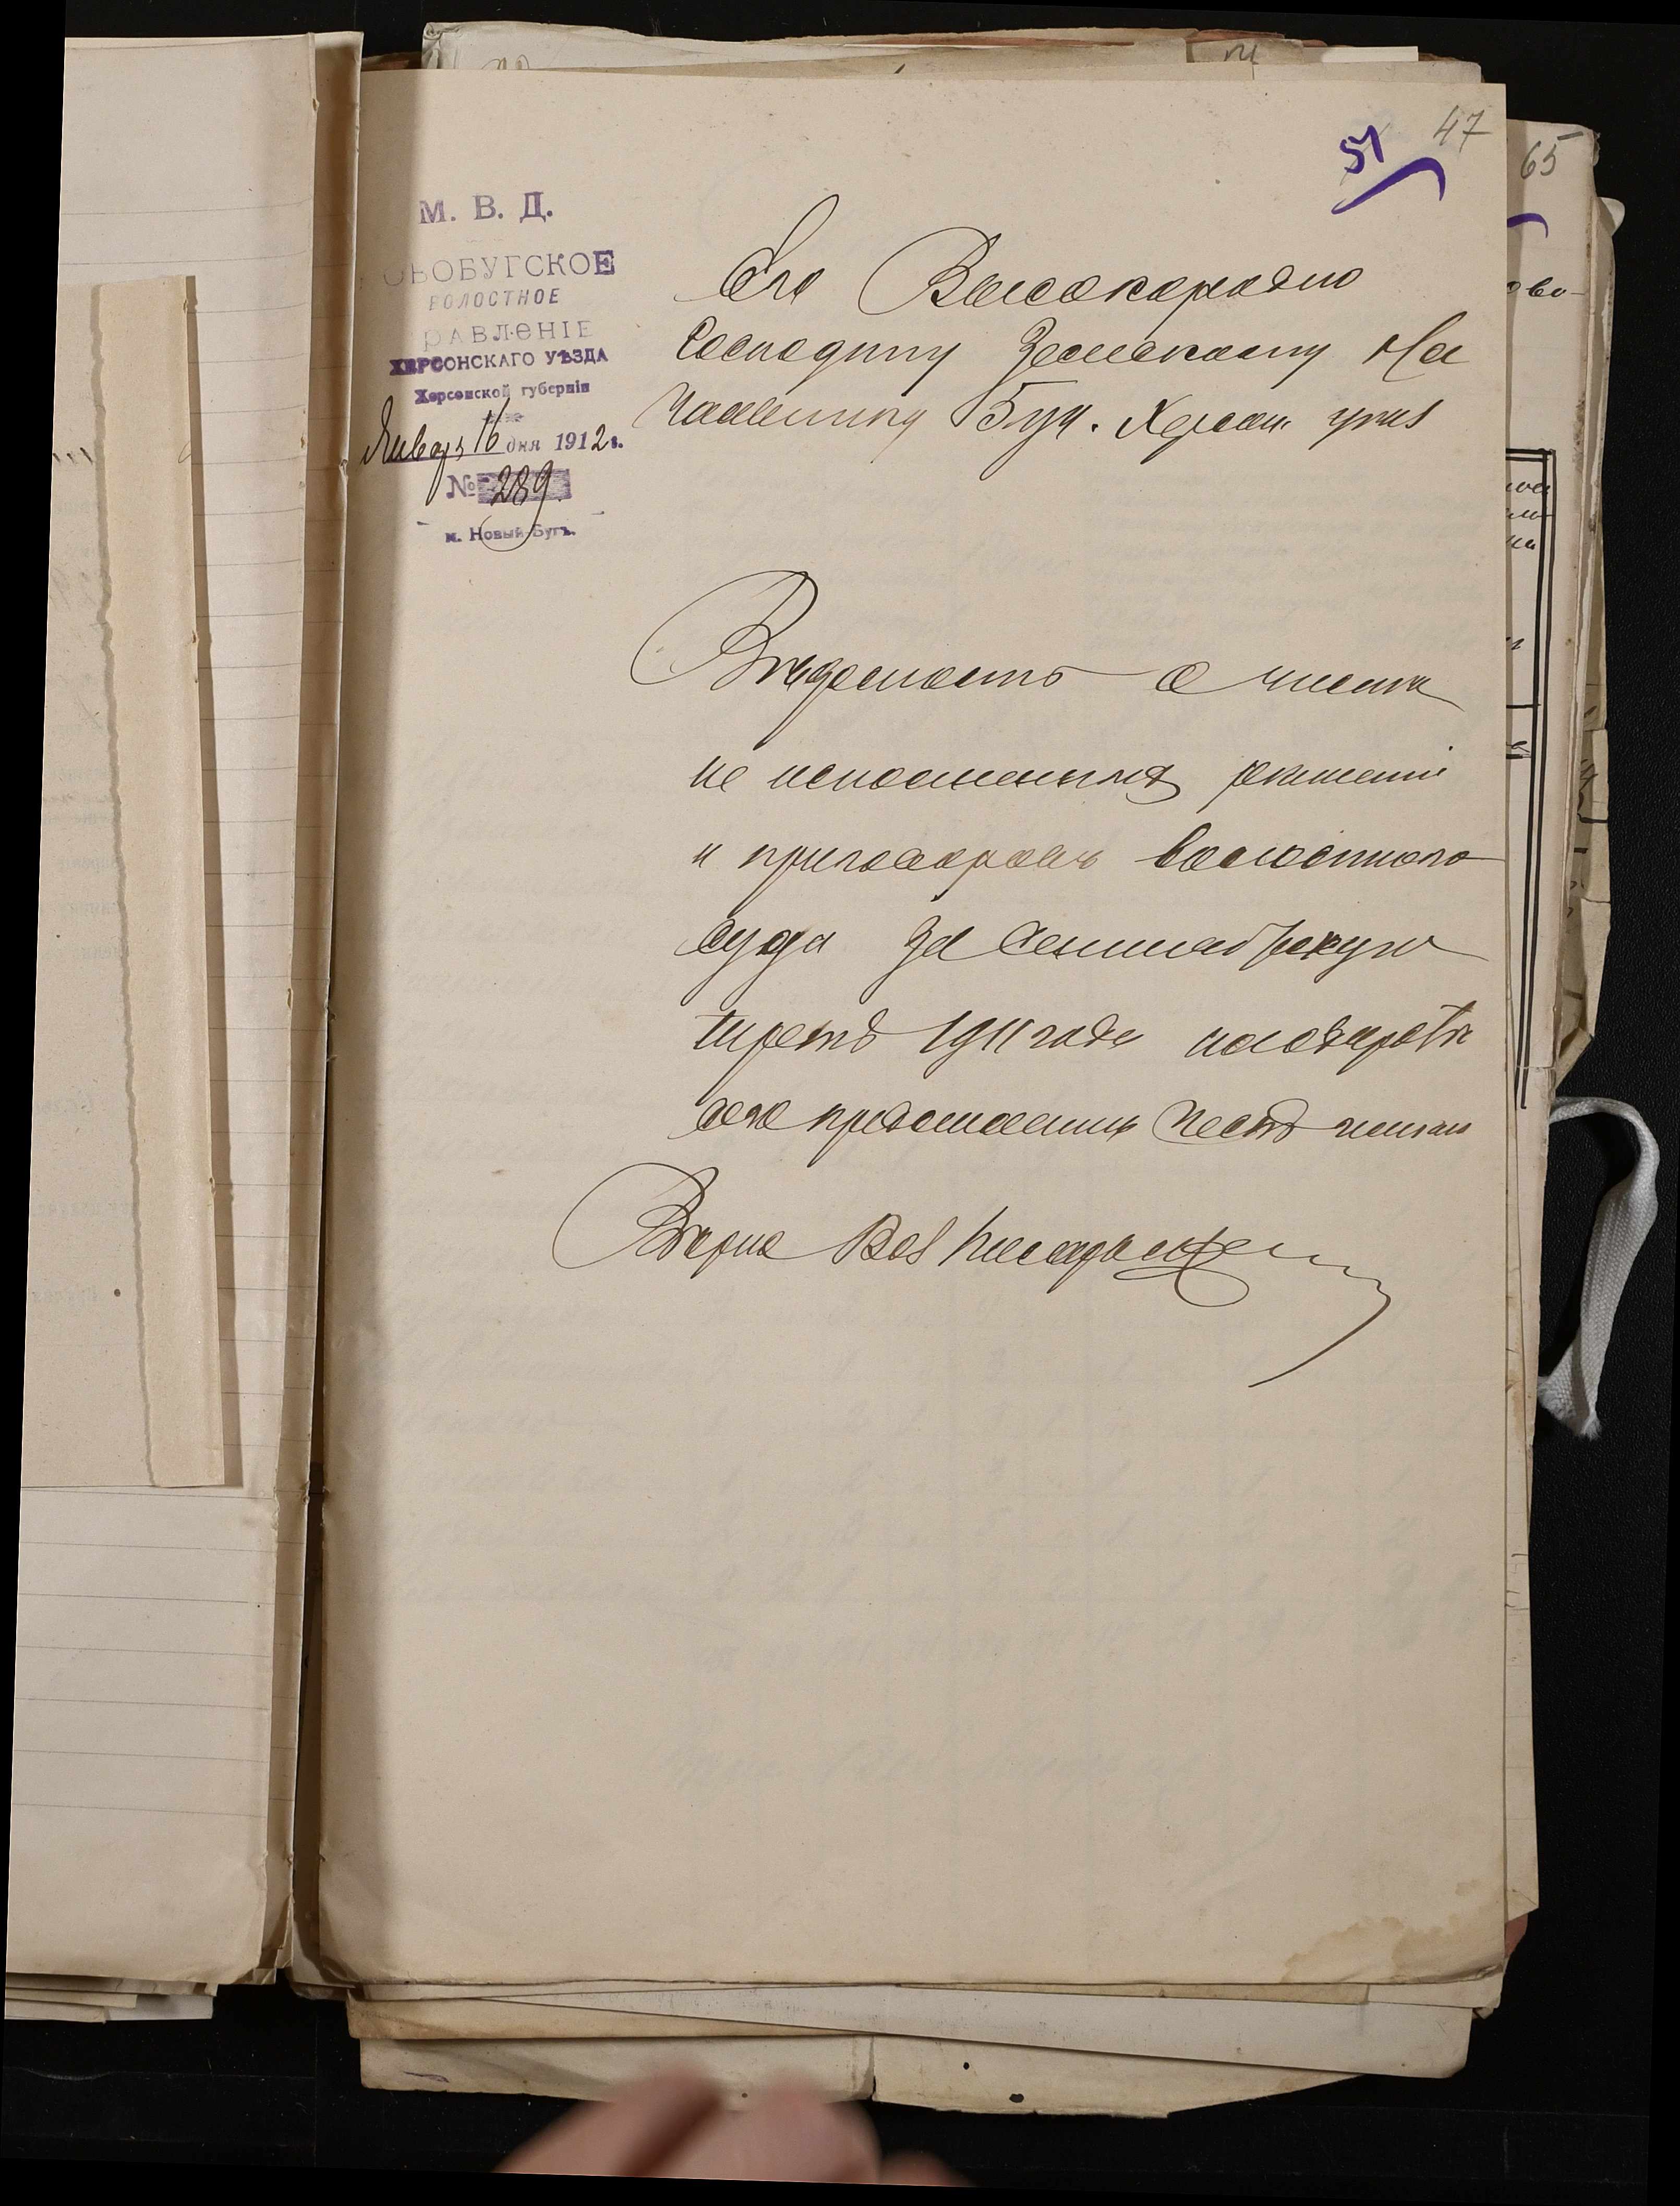 51 47
65
М. В. Д.
НОВОБУГСКОЕ
ВОЛОСТНОЕ
ПРАВЛЕНІЕ
ХЕРСОНСКАГО УѢЗДА
Херсонской губерніи
Января 16 дня 1912 г.
№ 289
м. Новый-Бугъ.
Его Высокородію
Господину Земскому На
чальнику Буг. Херсон. уѣз
Вѣдомость о числѣ
не исполненныхъ рѣшеній
и приговоровъ волостного
суда за Сентябрьскую
треть 1911 года
при семъ представить честь имѣю
Вѣрно Вол Писарь